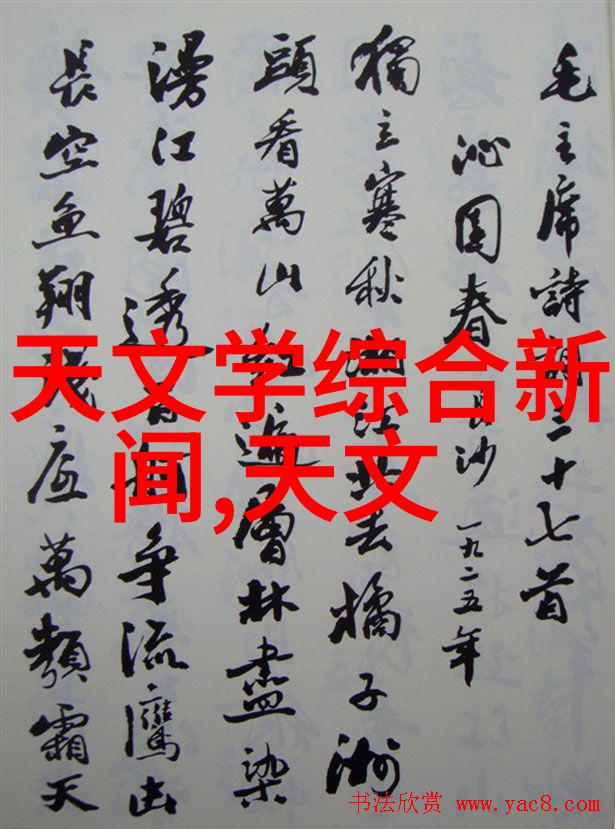 毛主席詩詞三十七首
沁園春 長沙 一九二五年
獨立寒秋湘江北去橘子洲
頭看萬山紅遍層林盡染
漫江碧透百舸争流鷹击
長空魚翔浅底萬類霜天
天文学综合新
闻,天文
书法欣赏 www.yac8.com